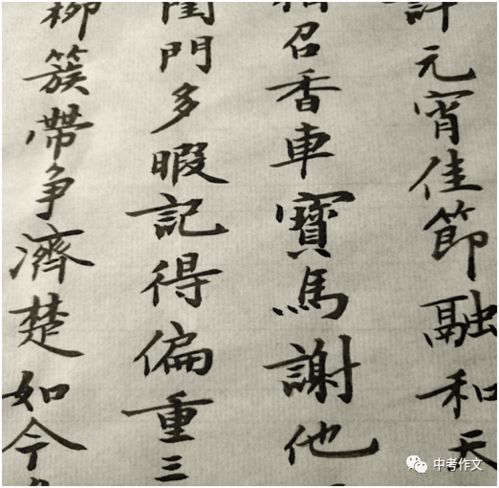 許元宵佳節融和天
相召香車寶馬謝他
閨門多暇記得偏重三
柳簇帶爭濟楚如今
中考作文